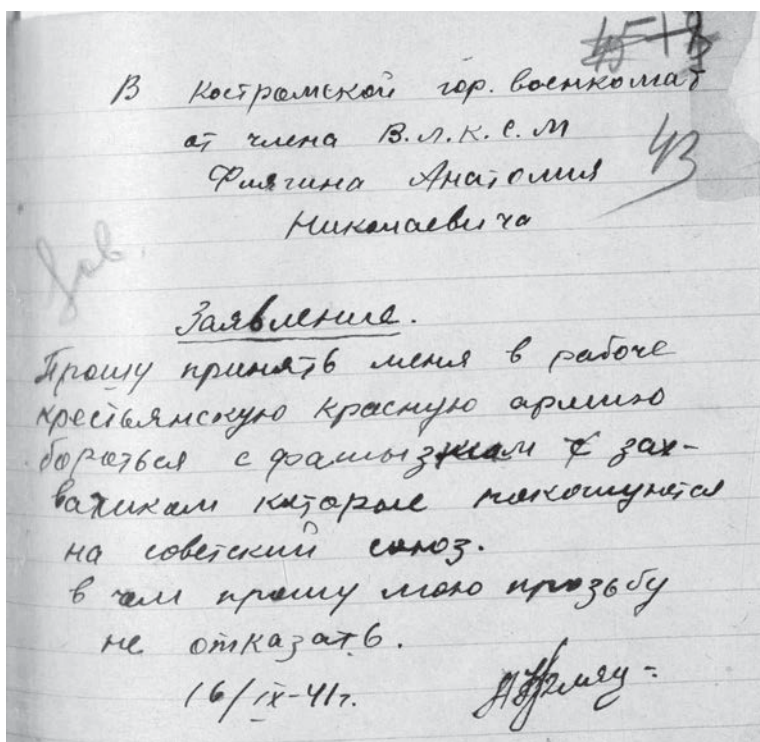 43
В Костромской гор. военкомат
от члена В.Л.К.С.М
Анатолия
Николаевича
Заявление.
Прошу принять меня в рабоче
крестьянскую красную армию
бороться с фашызмам с зах-
ватикам которые покошунтся
на советский союз.
в чем прошу мою прозьбу
не отказать.
16/IX-41г.